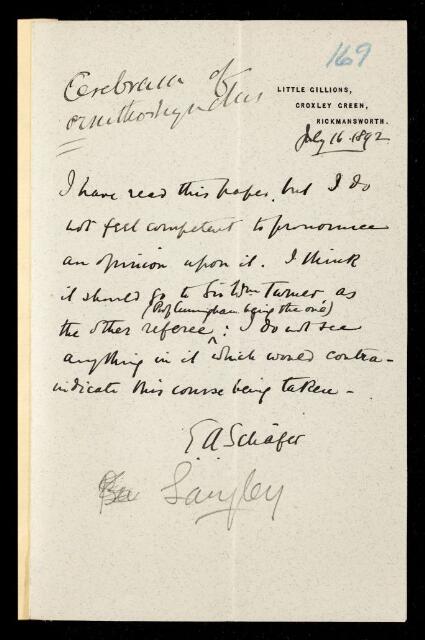 169
Cerebrum of
ornithorhynchus
LITTLE GILLIONS,
CROXLEY GREEN,
RICKMANSWORTH.
July 16. 1892
I have read this paper, but I do
not feel competent to pronounce
an opinion upon it. I think
it should go to Sir Wm Turner as
(Prof Cunningham being the one)
the other referee: I do not see
anything in it which would contra-
indicate this course being taken -
E A Schäfer
Langley